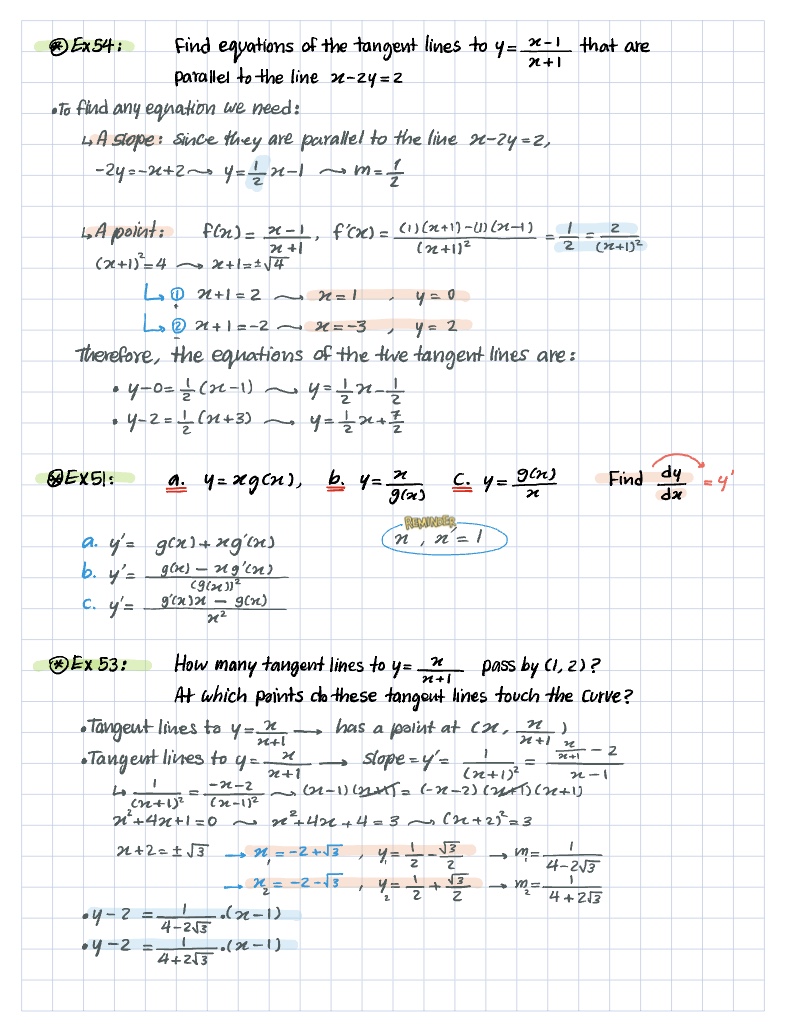 ⊛ Ex54: Find equations of the tangent lines to y = (x-1)/(x+1) that are
parallel to the line x-2y=2
• To find any equation we need:
↳ A slope: since they are parallel to the line x-2y=2,
-2y=-x+2 ⤳ y = 1/2 x-1 ⤳ m = 1/2
↳ A point: f(x) = (x-1)/(x+1), f'(x) = ((1)(x+1)-(1)(x-1))/(x+1)² = 1/2 = 2/(x+1)²
(x+1)²=4 ⤳ x+1=±√4
↳ ① x+1=2 ⤳ x=1 , y=0
↳ ② x+1=-2 ⤳ x=-3 , y=2
Therefore, the equations of the two tangent lines are:
• y-0= 1/2 (x-1) ⤳ y= 1/2 x - 1/2
• y-2= 1/2 (x+3) ⤳ y= 1/2 x + 7/2
⊛ Ex51: a. y=xg(x), b. y= x/g(x) c. y= g(x)/x Find dy/dx = y'
REMINDER
x , x'=1
a. y'= g(x)+xg'(x)
b. y'= (g(x) - xg'(x))/(g(x))²
c. y'= (g'(x)x - g(x))/x²
⊛ Ex53: How many tangent lines to y= x/(x+1) pass by (1,2)?
At which points do these tangent lines touch the curve?
• Tangent lines to y= x/(x+1) → has a point at (x, x/(x+1))
• Tangent lines to y= x/(x+1) → slope=y'= 1/(x+1)² = (x/(x+1) - 2)/(x-1)
↳ 1/(x+1)² = (-x-2)/(x-1)² ⤳ (x-1)(x+1) = (-x-2)(x+1)(x+1)
x²+4x+1=0 ⤳ x²+4x+4=3 ⤳ (x+2)²=3
x+2=±√3 → x₁=-2+√3 , y₁= 1/2 - √3/2 → m₁= 1/(4-2√3)
→ x₂=-2-√3 , y₂= 1/2 + √3/2 → m₂= 1/(4+2√3)
• y-2 = 1/(4-2√3) .(x-1)
• y-2 = 1/(4+2√3) .(x-1)